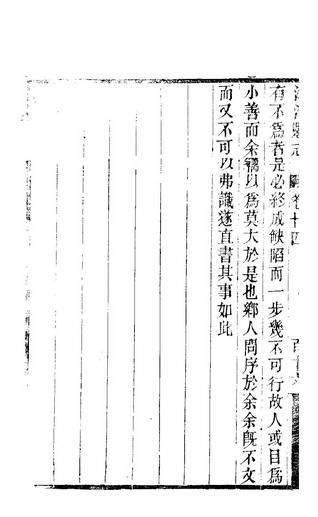 卷十四
有不爲者是必終成缺陷而一步幾不可行故人或目爲
小善而余竊以爲莫大於是也鄉人問序於余余旣不文
而又不可以弗識遂直書其事如此